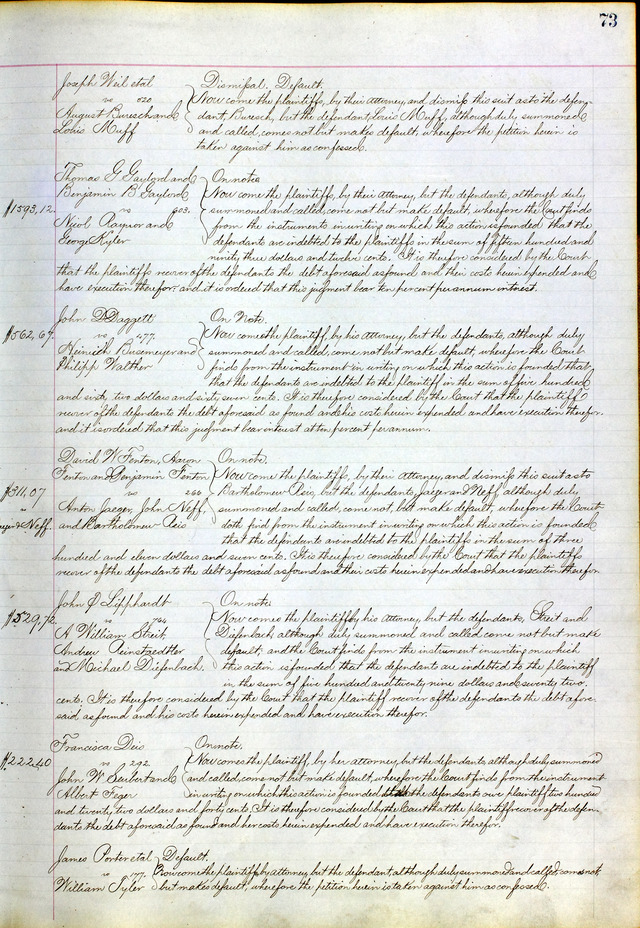 73
Joseph Weil et al
vs 020
August Buresch and
Louis Muff
Dismissal. Default.
Now come the plaintiffs, by their attorney, and dismiss this suit as to the defen-
dant, Buresch, but the defendant, Louis Muff, although duly summoned
and called, comes not but makes default, wherefore the petition herein is
taken against him as confessed.
Thomas G Gaylord and
Benjamin B Gaylord
vs 503.
Nicol Raynor and
George Kyler
$1593,12.
On notes
Now come the plaintiffs, by their Attorney, but the defendants, although duly
summoned and called, come not but make default, wherefore the Court finds
from the instruments in writing on which this action is founded that the
defendants are indebted to the plaintiffs in the sum of fifteen hundred and
ninety three dollars and twelve cents. It is therefore considered by the Court
that the plaintiffs recover of the defendants the debt aforesaid as found and their costs herein expended and
have execution therefor, and it is ordered that this judgment bear ten per cent per annum interest.
John D Daggett
vs 477.
Heinrich Busemeyer and
Philipp Walther
$562,67.
On Note.
Now comes the plaintiff, by his attorney, but the defendants, although duly
summoned and called, come not but make default, wherefore the Court
finds from the instrument in writing on which this action is founded that
that the defendants are indebted to the plaintiff in the sum of five hundred
and sixty two dollars and sixty seven cents. It is therefore considered by the Court that the plaintiff
recover of the defendants the debt aforesaid as found and his costs herein expended and have execution therefor.
and it is ordered that this judgment bear interest at ten per cent per annum.
David W Fenton, Aaron
Fenton and Benjamin Fenton
vs 266
Anton Jaeger, John Neff
and Bartholomew Reis
$311,07
" Neff.
On note.
Now come the plaintiffs, by their Attorney, and dismiss this suit as to
Bartholomew Reis, but the defendants, Jaeger and Neff although duly
summoned and called, come not, but make default, wherefore the Court
doth find from the instrument in writing on which this action is founded
that the defendants are indebted to the plaintiffs in the sum of three
hundred and eleven dollars and seven cents. It is therefore considered by the Court that the plaintiffs
recover of the defendants the debt aforesaid as found and their costs herein expended and have execution therefor
John P Lipphardt
vs 764
A William Streit,
Andrew Reinstaedtler
and Michael Diefenbach.
$529,72.
On note
Now comes the plaintiff by his attorney, but the defendants, Streit and
Diefenbach although duly summoned and called come not but make
default, and the Court finds from the instrument in writing on which
this action is founded that the defendants are indebted to the plaintiff
in the sum of five hundred and twenty nine dollars and seventy two
cents. It is therefore considered by the Court that the plaintiff recover of the defendants the debt afore-
said as found and his costs herein expended and have execution therefor.
Francisca Deis
vs 292
John W Seubert and
Albert Feger
$222,40
On note.
Now comes the plaintiff, by her attorney but the defendants although duly summoned
and called, come not but make default, wherefore the Court finds from the instrument
in writing on which this action is founded that the defendants owe plaintiff two hundred
and twenty two dollars and forty cents. It is therefore considered by the Court that the plaintiff recover of the defen-
dants the debt aforesaid as found and her costs herein expended and have execution therefor.
James Porter et al
vs 177.
William Tyler
Default.
Now come the plaintiffs by attorney, but the defendant, although duly summoned and called, comes not
but makes default, wherefore the petition herein is taken against him as confessed.